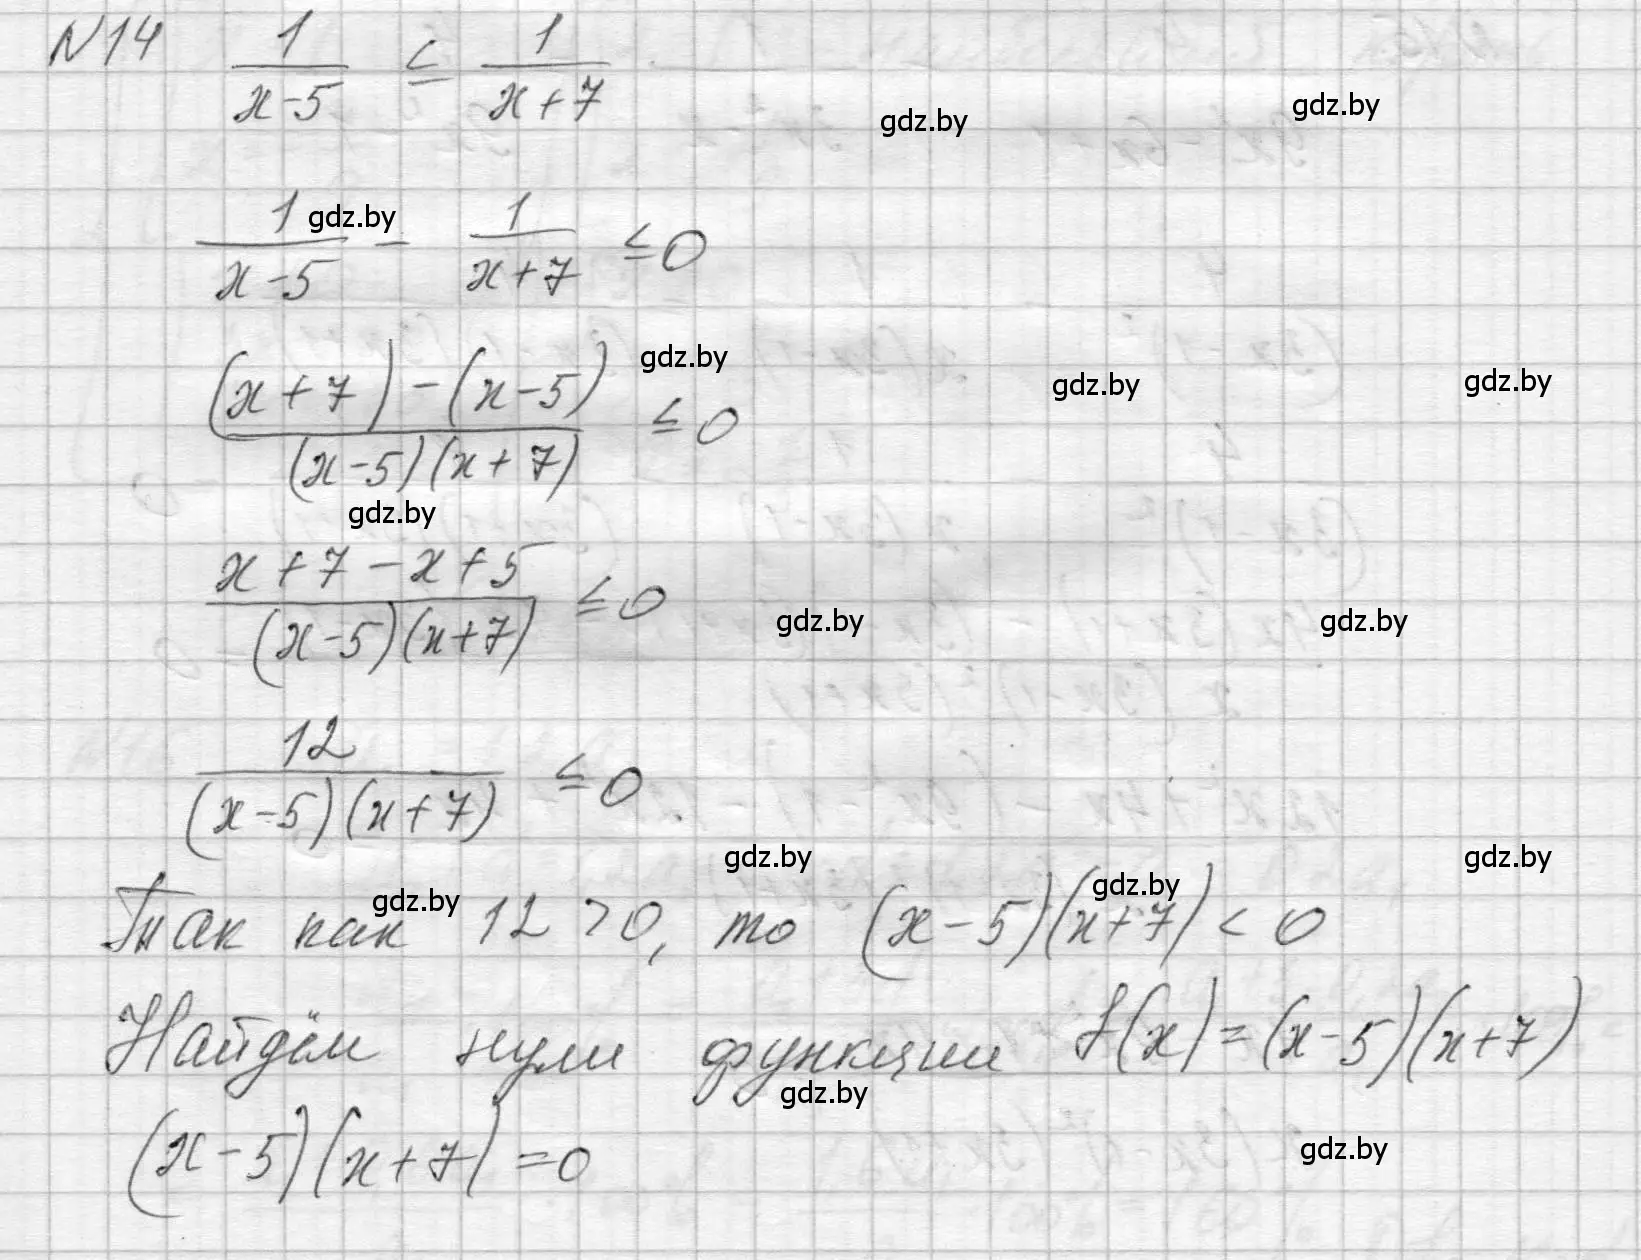 N14 1/(x-5) ≤ 1/(x+7)
gdz.by gdz.by
1/(x-5) - 1/(x+7) ≤ 0
gdz.by
((x+7)-(x-5))/((x-5)(x+7)) ≤ 0
gdz.by gdz.by gdz.by
gdz.by
(x+7-x+5)/((x-5)(x+7)) ≤ 0
gdz.by gdz.by
12/((x-5)(x+7)) ≤ 0.
gdz.by gdz.by
gdz.by gdz.by
Так как 12 > 0, то (x-5)(x+7) < 0
Найдём нули функции f(x)=(x-5)(x+7)
gdz.by
(x-5)(x+7)=0
gdz.by